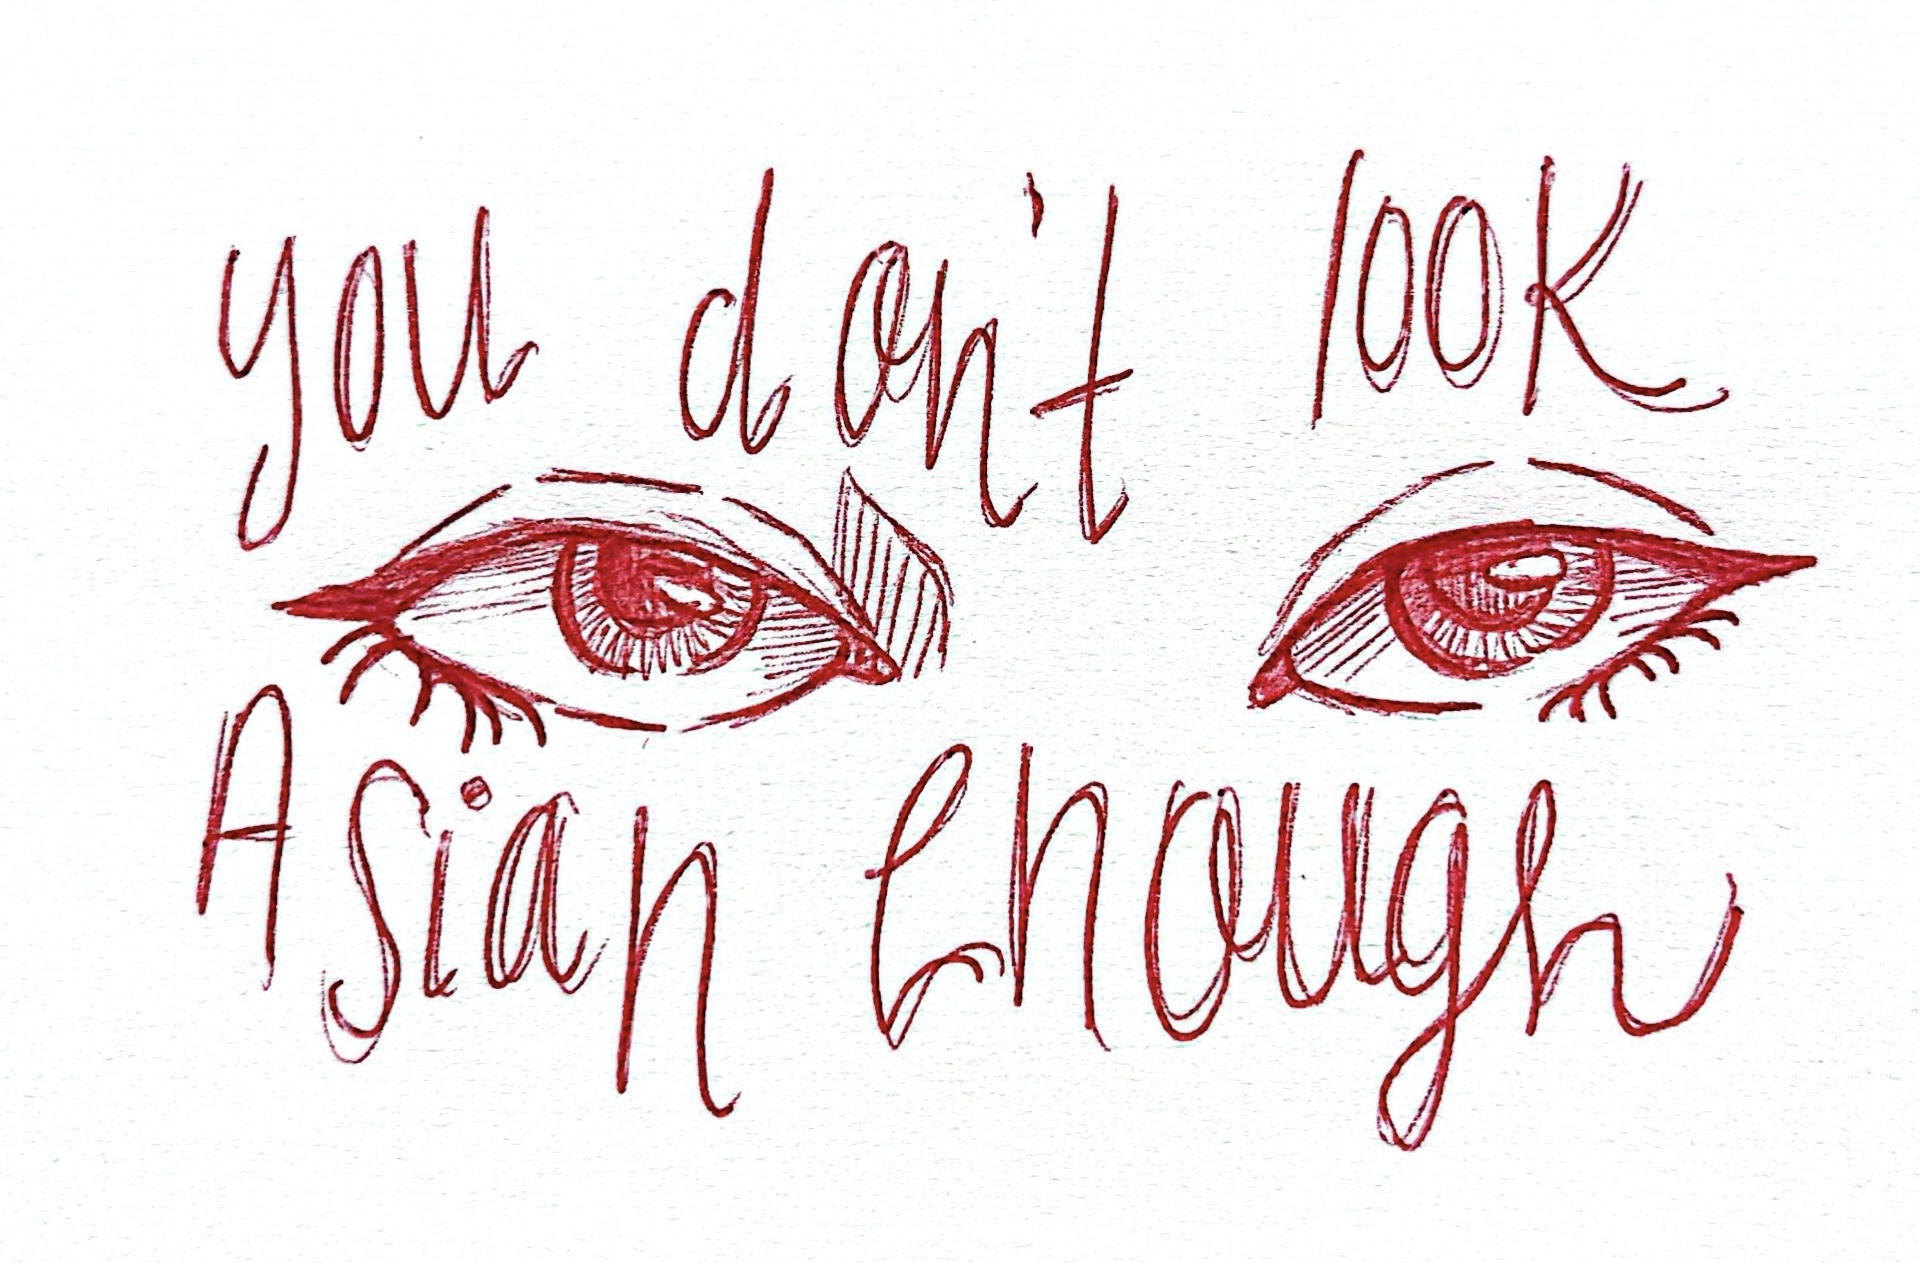 you don't look
Asian Enough